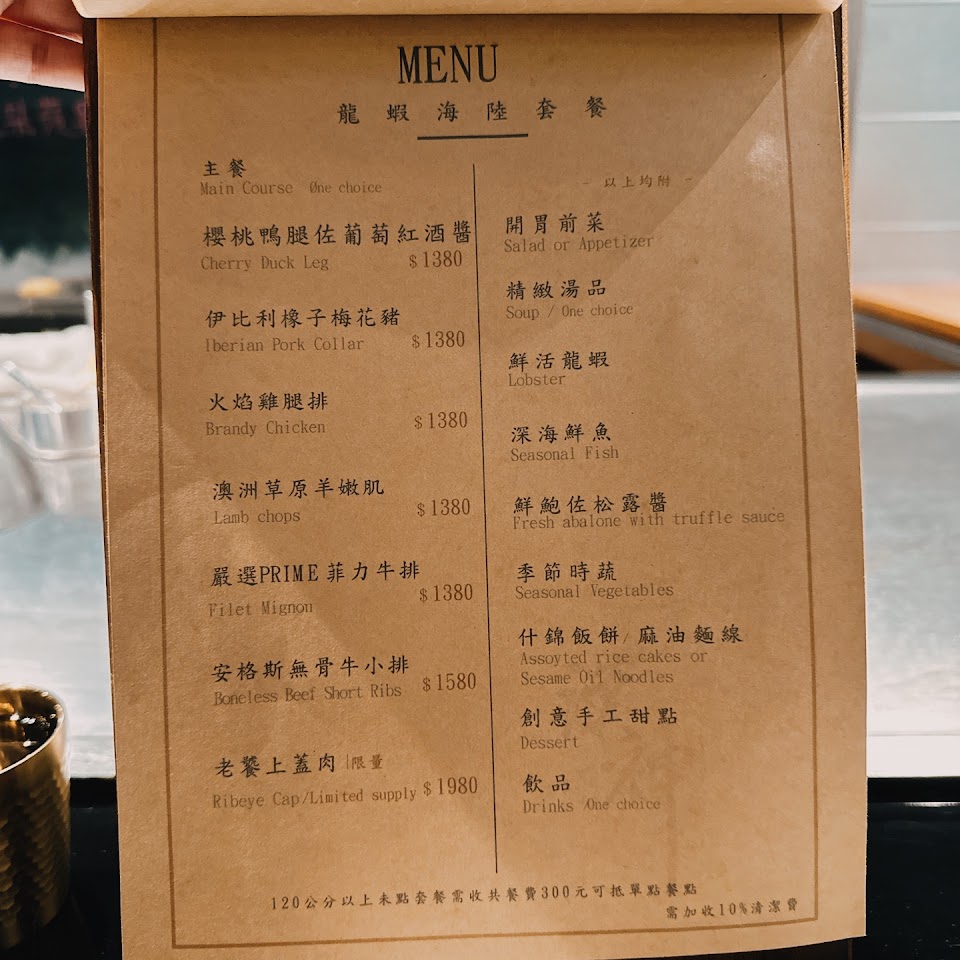 MENU
龍蝦海陸套餐
主餐
Main Course Øne choice
櫻桃鴨腿佐葡萄紅酒醬
Cherry Duck Leg $1380
伊比利橡子梅花豬
Iberian Pork Collar $1380
火焰雞腿排
Brandy Chicken $1380
澳洲草原羊嫩肌
Lamb chops $1380
嚴選PRIME菲力牛排
Filet Mignon $1380
安格斯無骨牛小排
Boneless Beef Short Ribs $1580
老饕上蓋肉|限量
Ribeye Cap/Limited supply $1980
- 以上均附 -
開胃前菜
Salad or Appetizer
精緻湯品
Soup / One choice
鮮活龍蝦
Lobster
深海鮮魚
Seasonal Fish
鮮鮑佐松露醬
Fresh abalone with truffle sauce
季節時蔬
Seasonal Vegetables
什錦飯餅/麻油麵線
Assoyted rice cakes or
Sesame Oil Noodles
創意手工甜點
Dessert
飲品
Drinks /One choice
120公分以上未點套餐需收共餐費300元可抵單點餐點
需加收10%清潔費